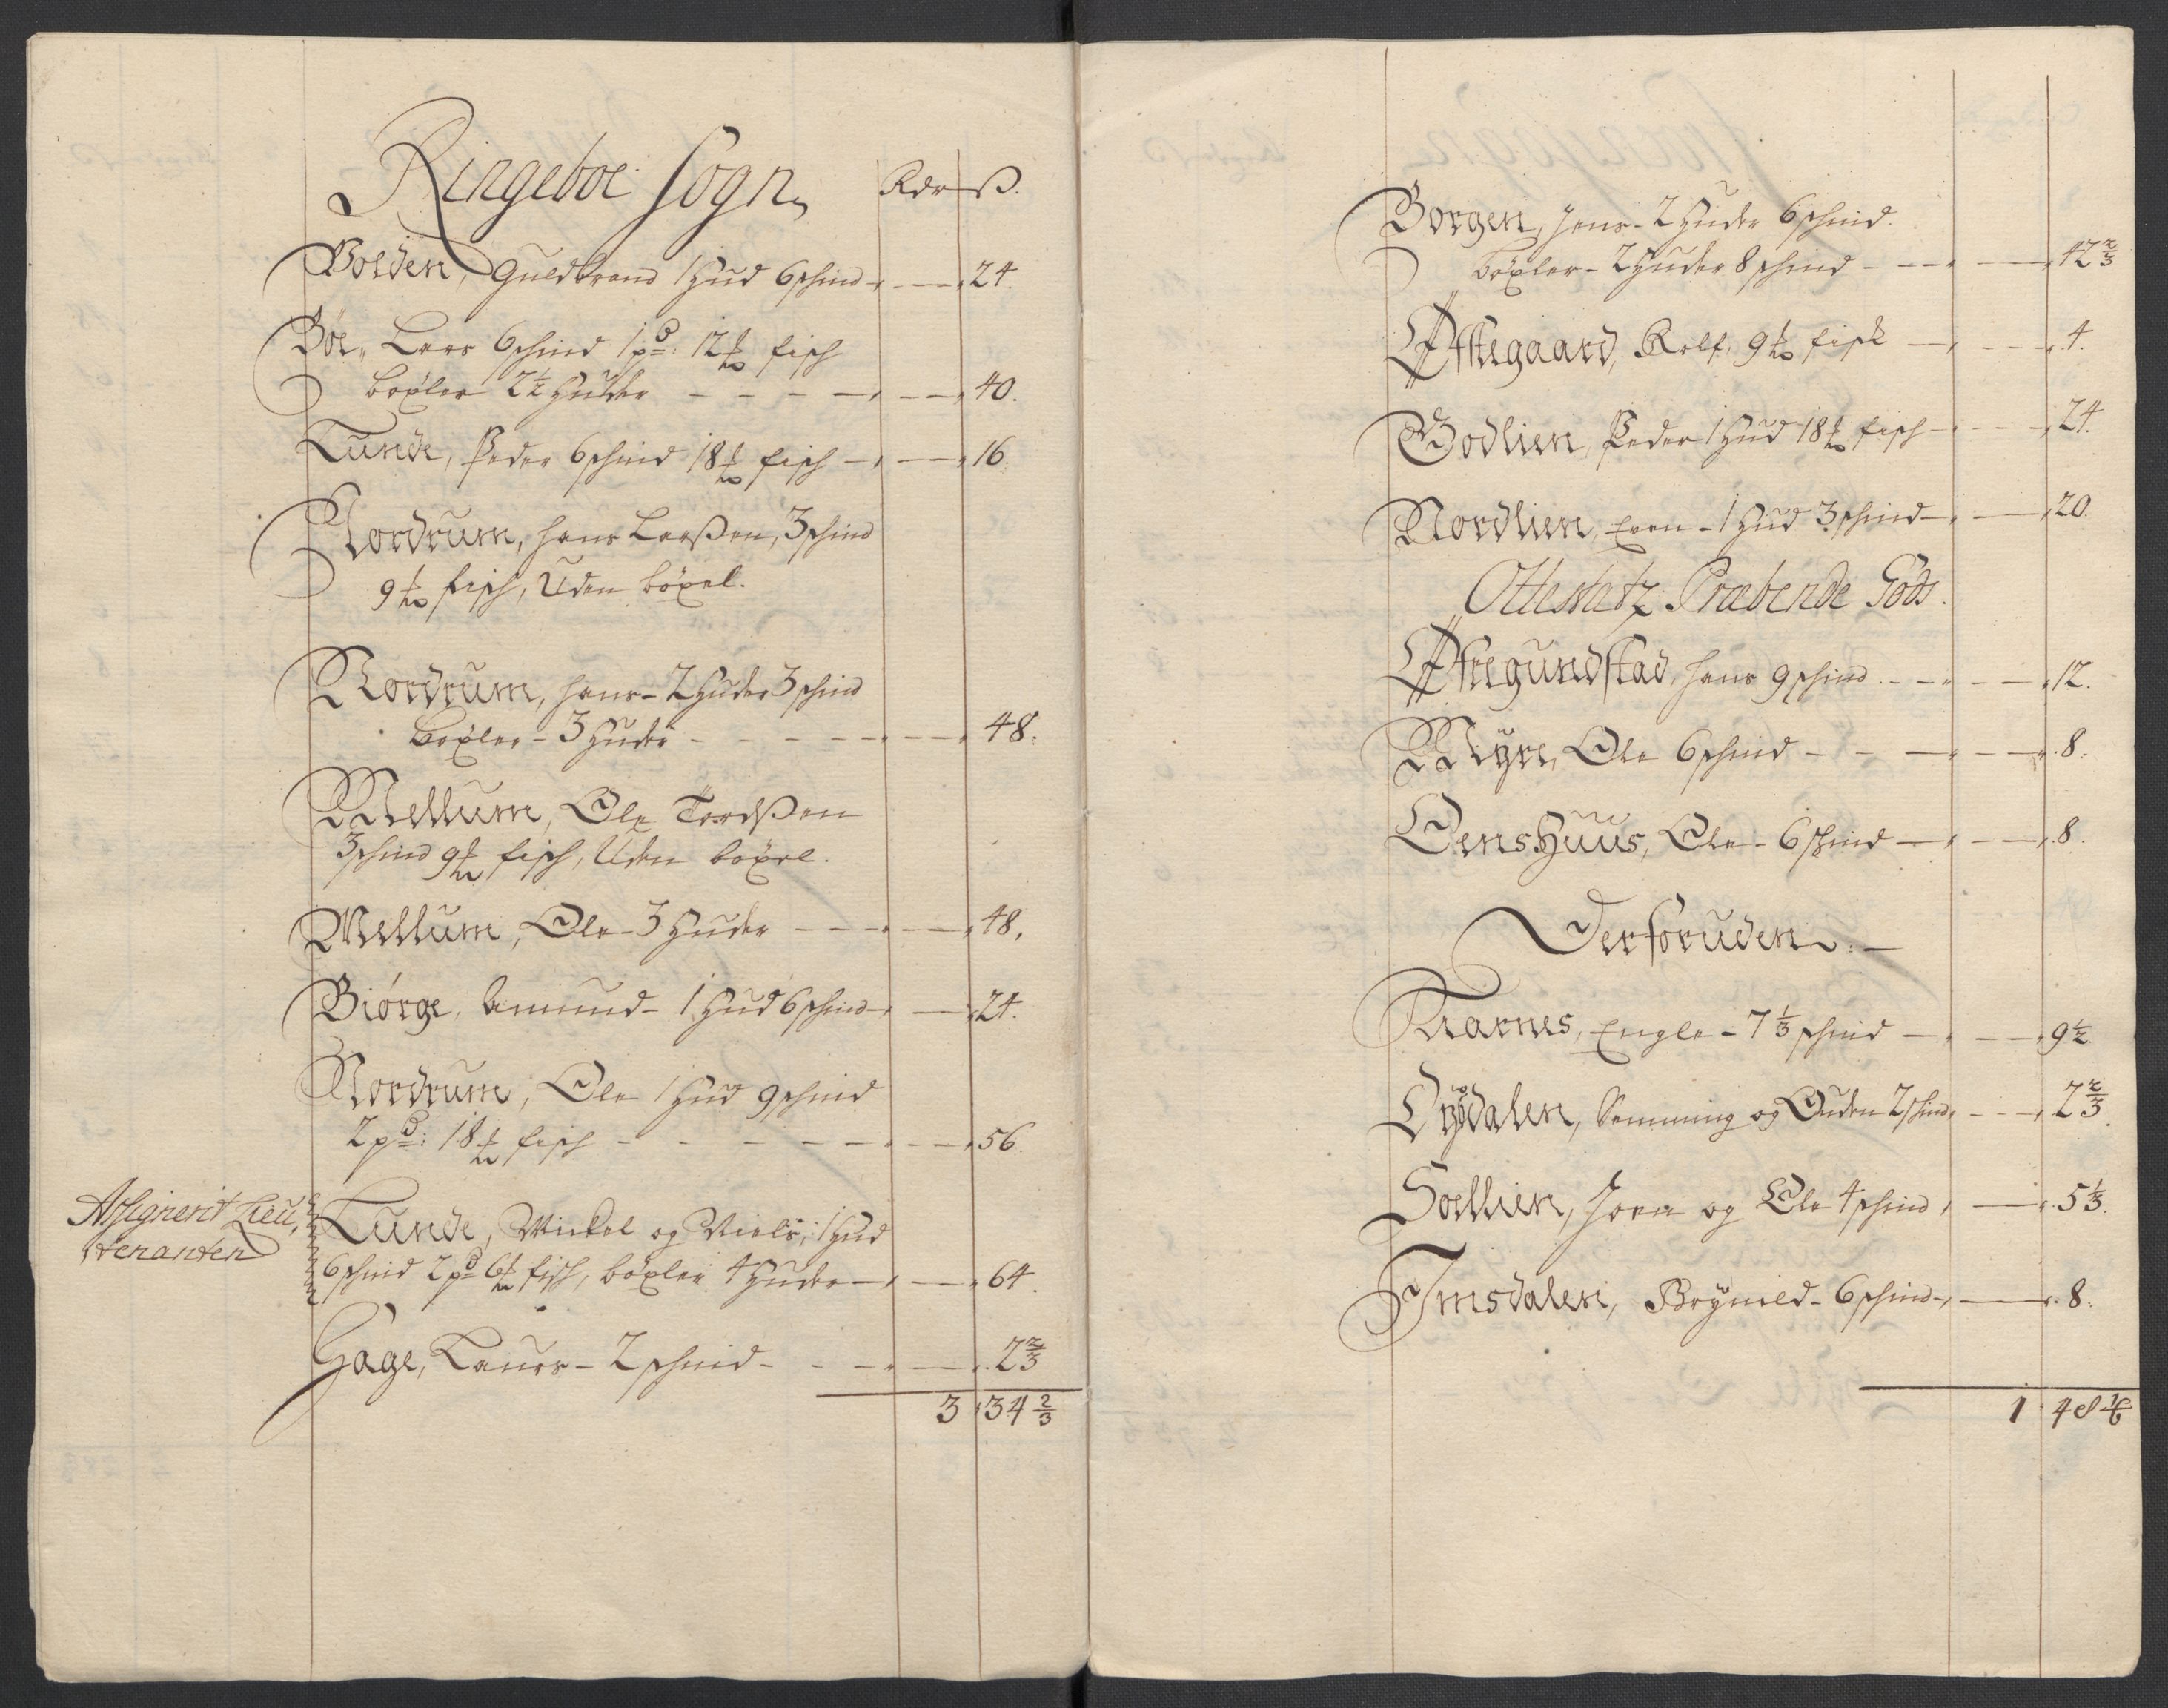 Ringeboe Sogn,
Rdr ß.
Volden, Guldbrand 1 Hud 6 schind 24.
Böe, Lars 6 schind 1 pd: 12½ fisch
boxler 2½ Huder 40.
Tunde, Peder 6 schind 18½ fisch 16.
Nordrum, Hans Larßen, 3 schind
9½ fisch, Uden böxel.
Nordrum, Hans - 2 Huder 3 schind
boxler - 3 Huder 48.
Mellum, Ole Tordßen
3 schind 9½ fisch, Uden böxel.
Mellum, Ole - 3 Huder 48.
Biörge, Amund - 1 Hud 6 schind 24.
Nordrum, Ole 1 Hud 9 schind
2 pd: 18½ fisch 56.
Assignerit Lieu,
tenanten
Tunde, Mickel og Niels, 1 Hud
6 schind 2 pd 6½ fisch, böxler 4 Huder 64.
Hage, Laurs - 2 schind 2 2/3
3 34 2/3
Borgen, Jens - 2 Huder 6 schind.
böxler - 2 Huder 8 schind 42 2/3
Østegaard, Rolf, 9½ fisk 4.
Godlien, Peder 1 Hud 18½ fisch 24.
Nordlien, Even - 1 Hud 3 schind 20.
Ottestatz Præbende Gods.
Østegundstad, Hans 9 schind 12.
Myre, Ole 6 schind 8.
Eenshuus, Ole - 6 schind 8.
Derforuden.
Kiarnes, Engle - 7 1/3 schind 9½
Örsdalen, Semming og Ouden 2 schind 2 2/3.
Sollien, Joen og Ole 4 schind 5 1/3.
Imsdalen, Bryneld - 6 schind 8.
1 48 1/6